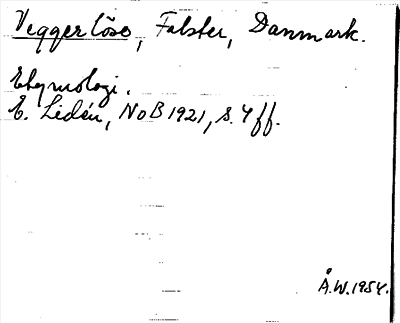 Veggerløse, Falster, Danmark.
Etymologi.
E. Lidén, NoB 1921, s. 4 ff.
Å.W. 1954.